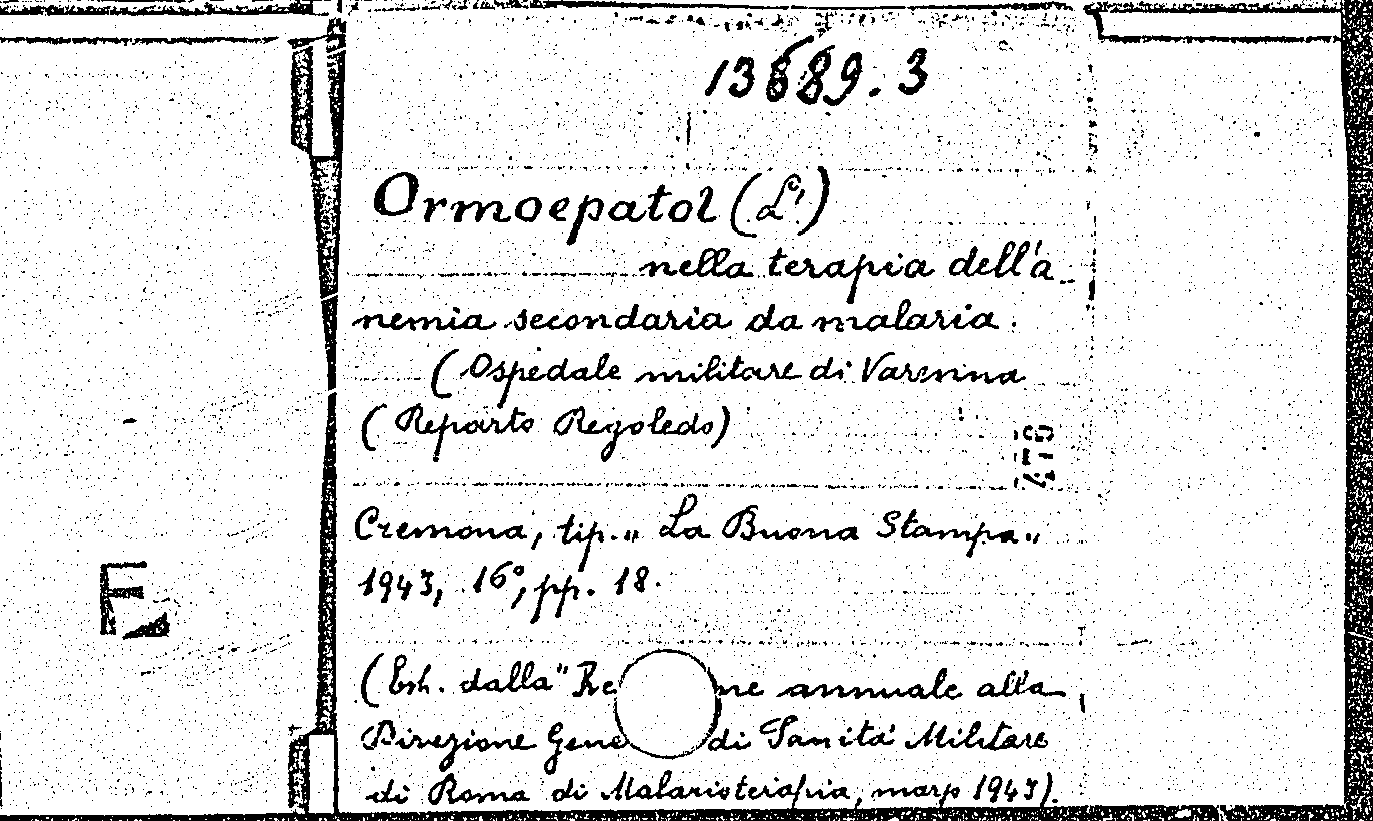 13689.3
Ormoepatol (L')
nella terapia dell'a
nemia secondaria da malaria.
(Ospedale militare di Varenna
(Reparto Regoledo)
Cremona, tip. „ La Buona Stampa „
1943, 16°, pp. 18.
E
(Estr. dalla " Re ne annuale alla
Direzione Gene di Sanità Militare
di Roma di Malarioterapia, marzo 1943).